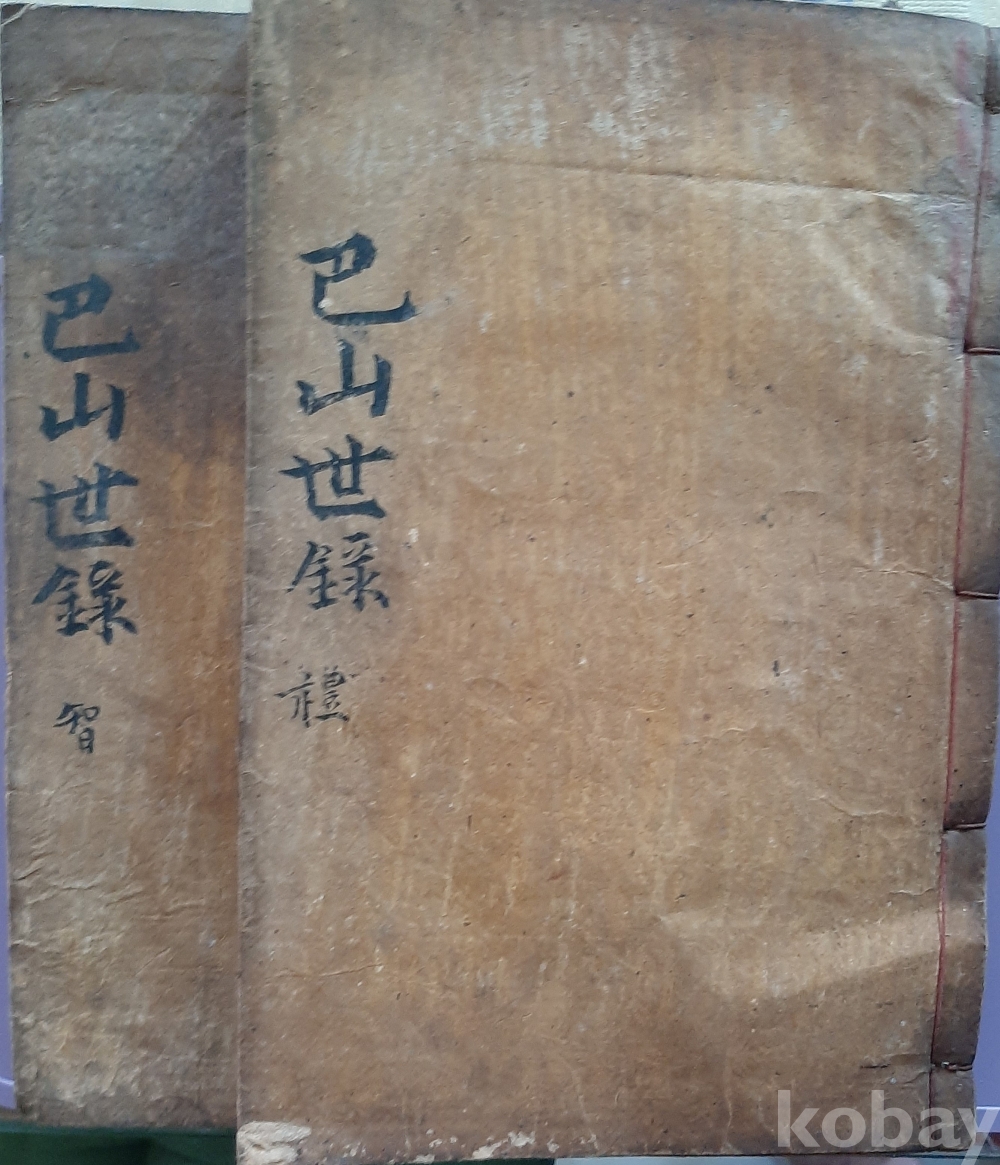 巴山世錄
禮
巴山世錄
智
kobay